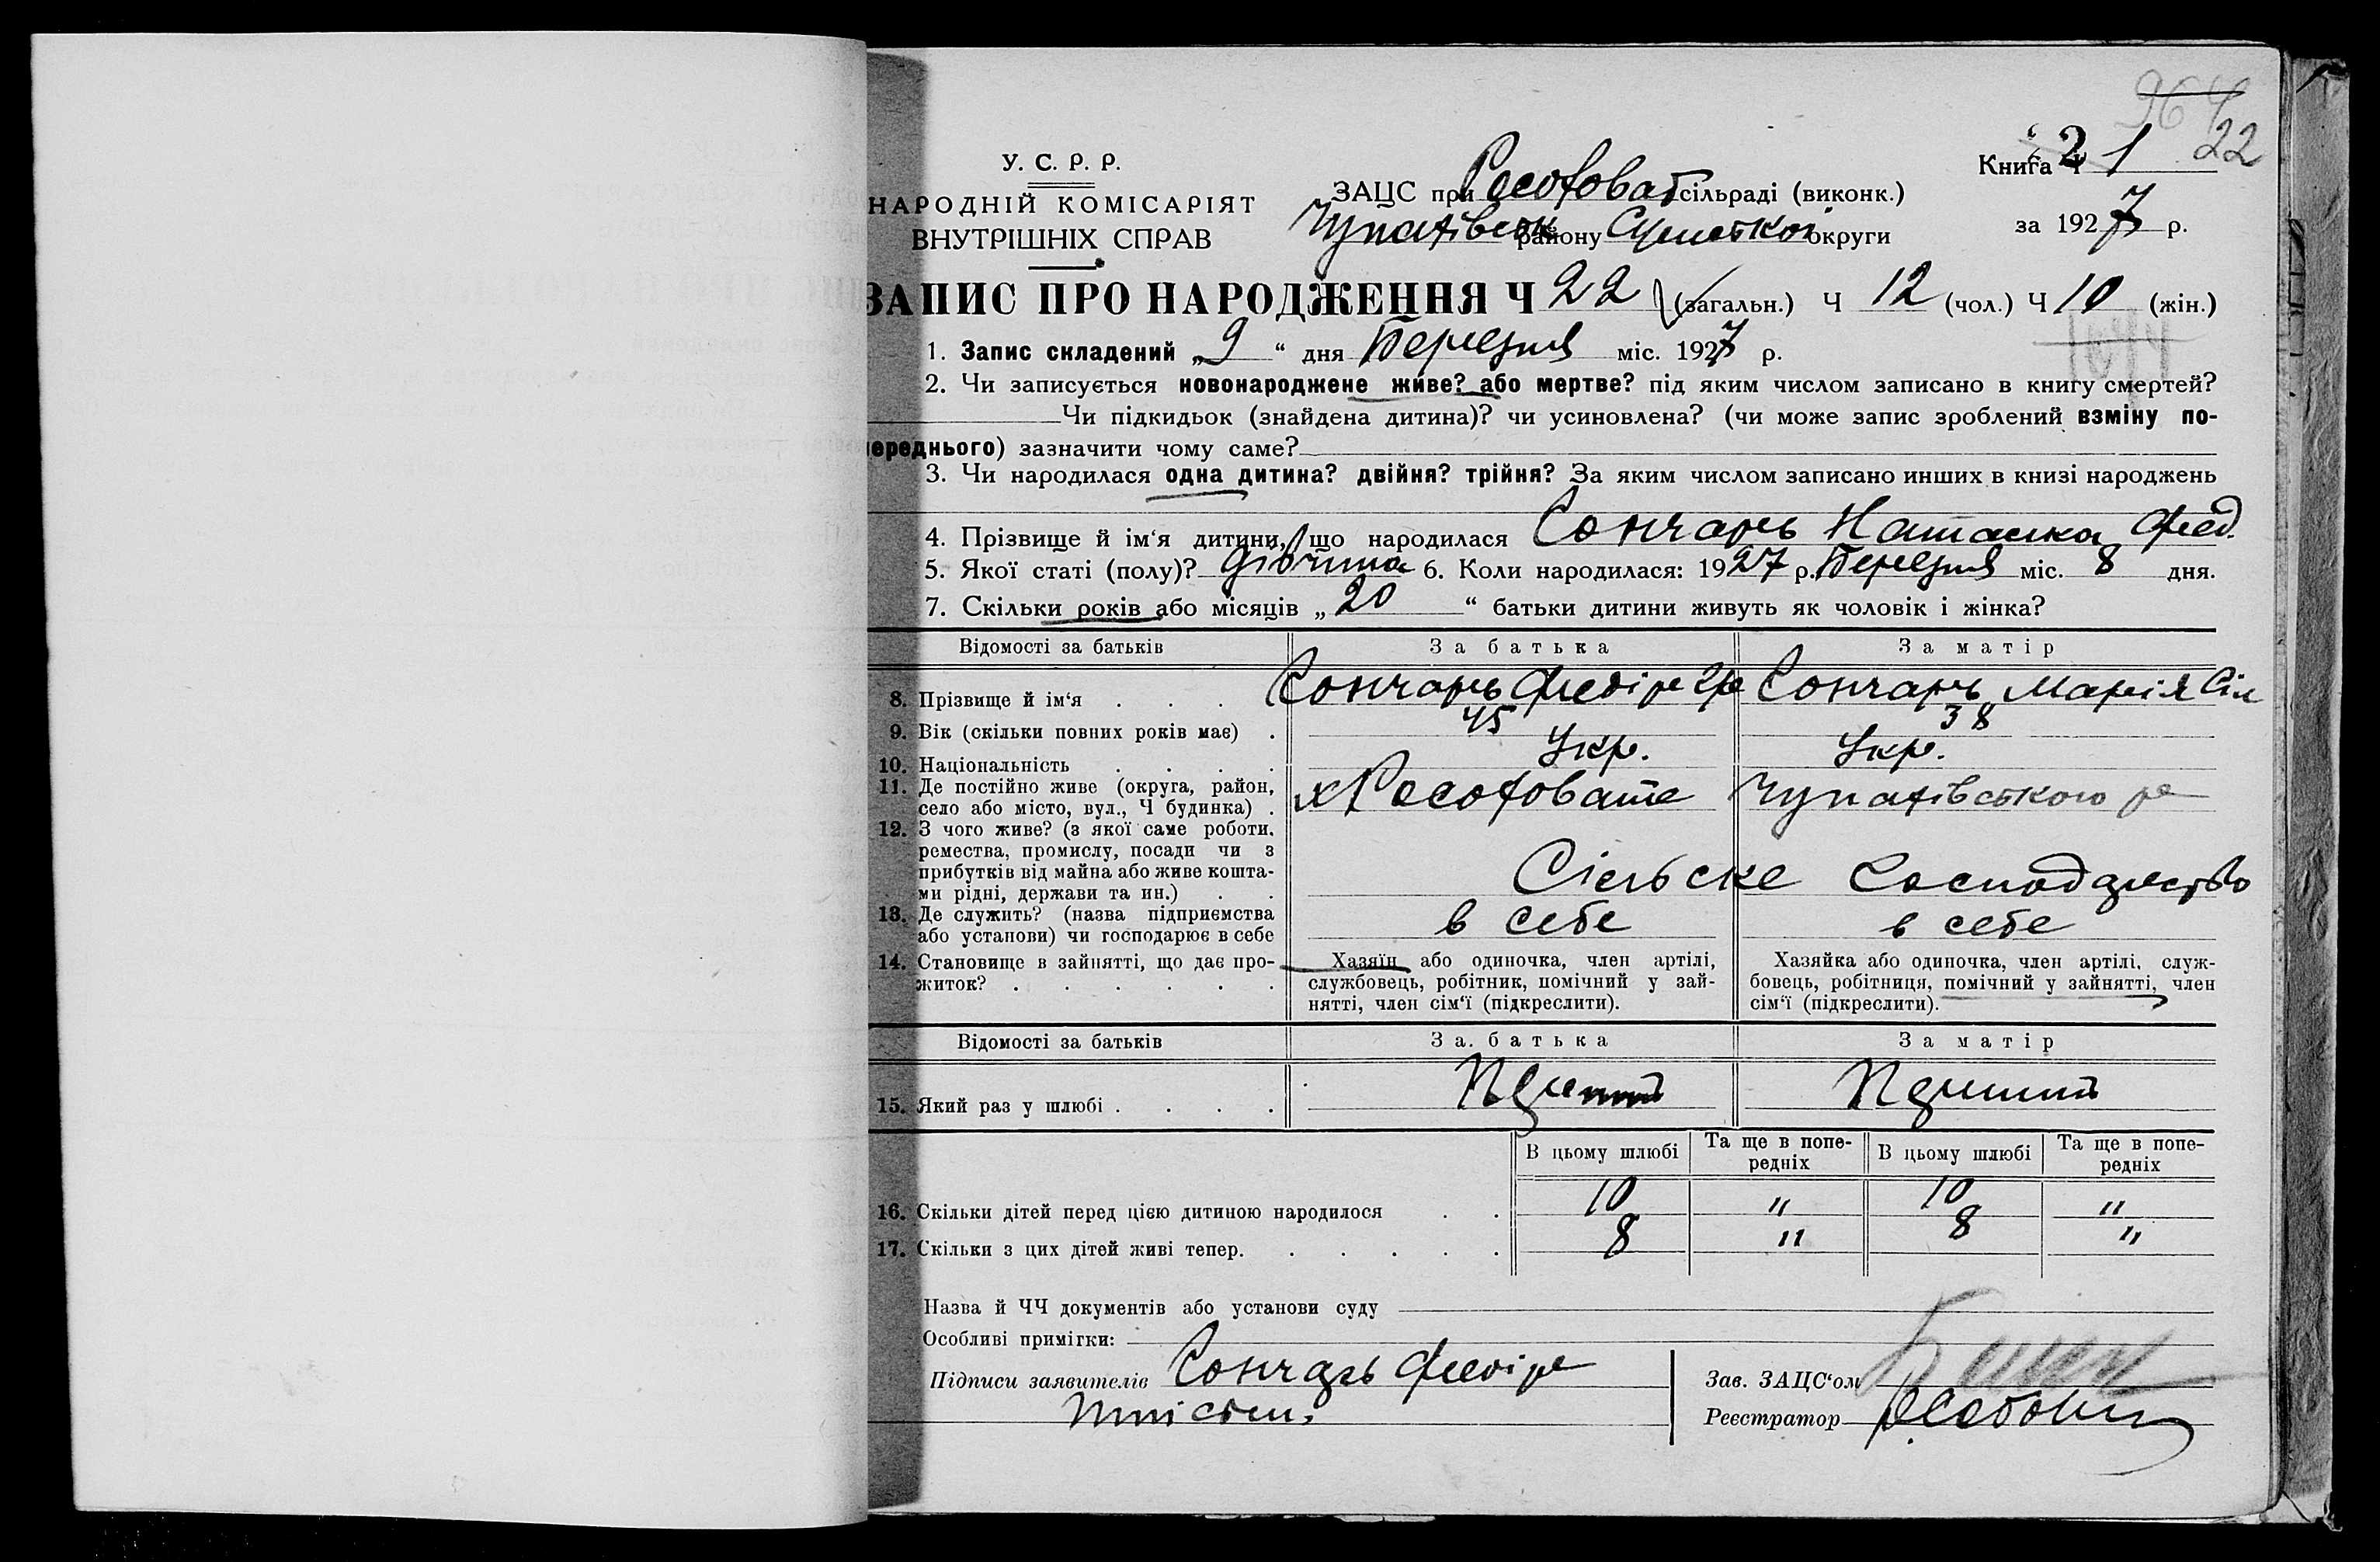 22
У. С. Р. Р.
Книга Ч 21
НАРОДНІЙ КОМІСАРІЯТ
ЗАЦС при Росоховат сільраді (виконк.)
ВНУТРІШНІХ СПРАВ
Чупахівськ району Сумської округи
за 1927 р.
ЗАПИС ПРО НАРОДЖЕННЯ Ч 22 (загальн.) Ч 12 (чол.) Ч 10 (жін.)
1. Запис складений „9“ дня Березня міс. 1927 р.
2. Чи записується новонароджене живе? або мертве? під яким числом записано в книгу смертей?
Чи підкидьок (знайдена дитина)? чи усиновлена? (чи може запис зроблений взміну по-
переднього) зазначити чому саме?
3. Чи народилася одна дитина? двійня? трійня? За яким числом записано инших в книзі народжень
4. Прізвище й ім‘я дитини, що народилася Гончарь Наташка Фед.
5. Якої статі (полу)? дівчина 6. Коли народилася: 1927 р. Березня міс. 8 дня.
7. Скільки років або місяців „20“ батьки дитини живуть як чоловік і жінка?
Відомості за батьків За батька За матір
8. Прізвище й ім‘я . . . Гончарь Федір Гр Гончарь Марія Сіл
9. Вік (скільки повних років має) . 45 38
10. Національність . . . . Укр. Укр.
11. Де постійно живе (округа, район,
село або місто, вул., Ч будинка) . х Росоховате Чупахівського р
12. З чого живе? (з якої саме роботи,
ремества, промислу, посади чи з
прибутків від майна або живе кошта-
ми рідні, держави та ин.) . . Сільське Господарство
13. Де служить? (назва підприємства
або установи) чи господарює в себе в себе в себе
14. Становище в зайнятті, що дає про-
житок? . . . . . .
Хазяїн або одиночка, член артілі,
службовець, робітник, помічний у зай-
нятті, член сім‘ї (підкреслити).
Хазяйка або одиночка, член артілі, служ-
бовець, робітниця, помічний у зайнятті, член
сім‘ї (підкреслити).
Відомості за батьків За батька За матір
15. Який раз у шлюбі . . . . Перший Перший
В цьому шлюбі Та ще в попе-
редніх В цьому шлюбі Та ще в попе-
редніх
16. Скільки дітей перед цією дитиною народилося . . 10 " 10 "
17. Скільки з цих дітей живі тепер. . . . . . 8 " 8 "
Назва й ЧЧ документів або установи суду
Особливі примітки:
Підписи заявителів Гончарь Федір
Зав. ЗАЦС‘ом
Реєстратор